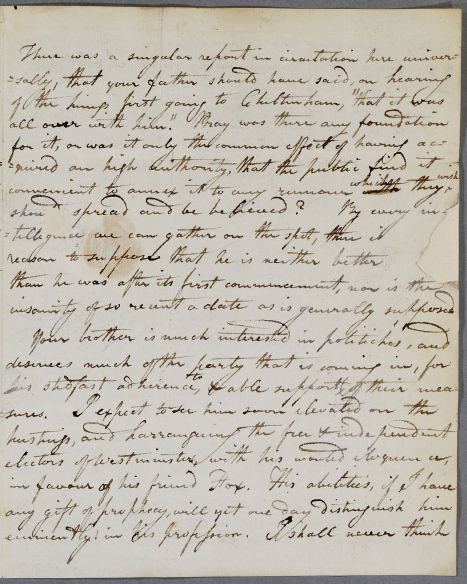 There was a singular report in circulation here univer-
=sally, that your father should have said, on hearing
of the kings first going to Cheltenham, "that it was
all over with him." Pray was there any foundation
for it, or was it only the common effect of having ac-
=quired an high authority, that the public find it
convenient to annex it to any rumour which they wish
shou'd spread and be believed? By every in-
=telligence we can gather on the spot, there is
reason to suppose that he is neither better
than he was after its first commencement, nor is the
insanity of so recent a date as is generally supposed
Your brother is much interested in politicks, and
deserves much of the party that is coming in, for
his stedfast adherence to & able support of their mea-
sures. I expect to see him soon elevated on the
hustings, and harranguing the free & independent
electors of Westminster, with his wonted eloquence,
in favour of his friend Fox. His abilities, if I have
any gift of prophecy, will yet one day distinguish him
eminently in his profession. I shall never think